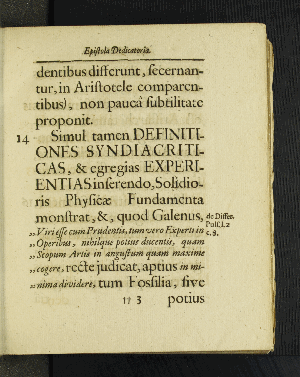 Epistola Dedicatoria.
dentibus differunt, secernan-
tur, in Aristotele comparen-
tibus), non paucâ subtilitate
proponit.
14 Simul tamen DEFINITI-
ONES SYNDIACRITI-
CAS, & egregias EXPERI-
ENTIAS inserendo, Solidio-
ris Physicæ Fundamenta
monstrat, &, quod Galenus, de Differ.
„Viri esse cum Prudentis, tum vero Experti in Puls. l. 2
„Operibus, nihilque potius ducentis, quam c. 3.
„Scopum Artis in angustum quam maxime
„cogere, recte judicat, aptius in mi-
„nima dividere, tum Fossilia, sive
3 potius